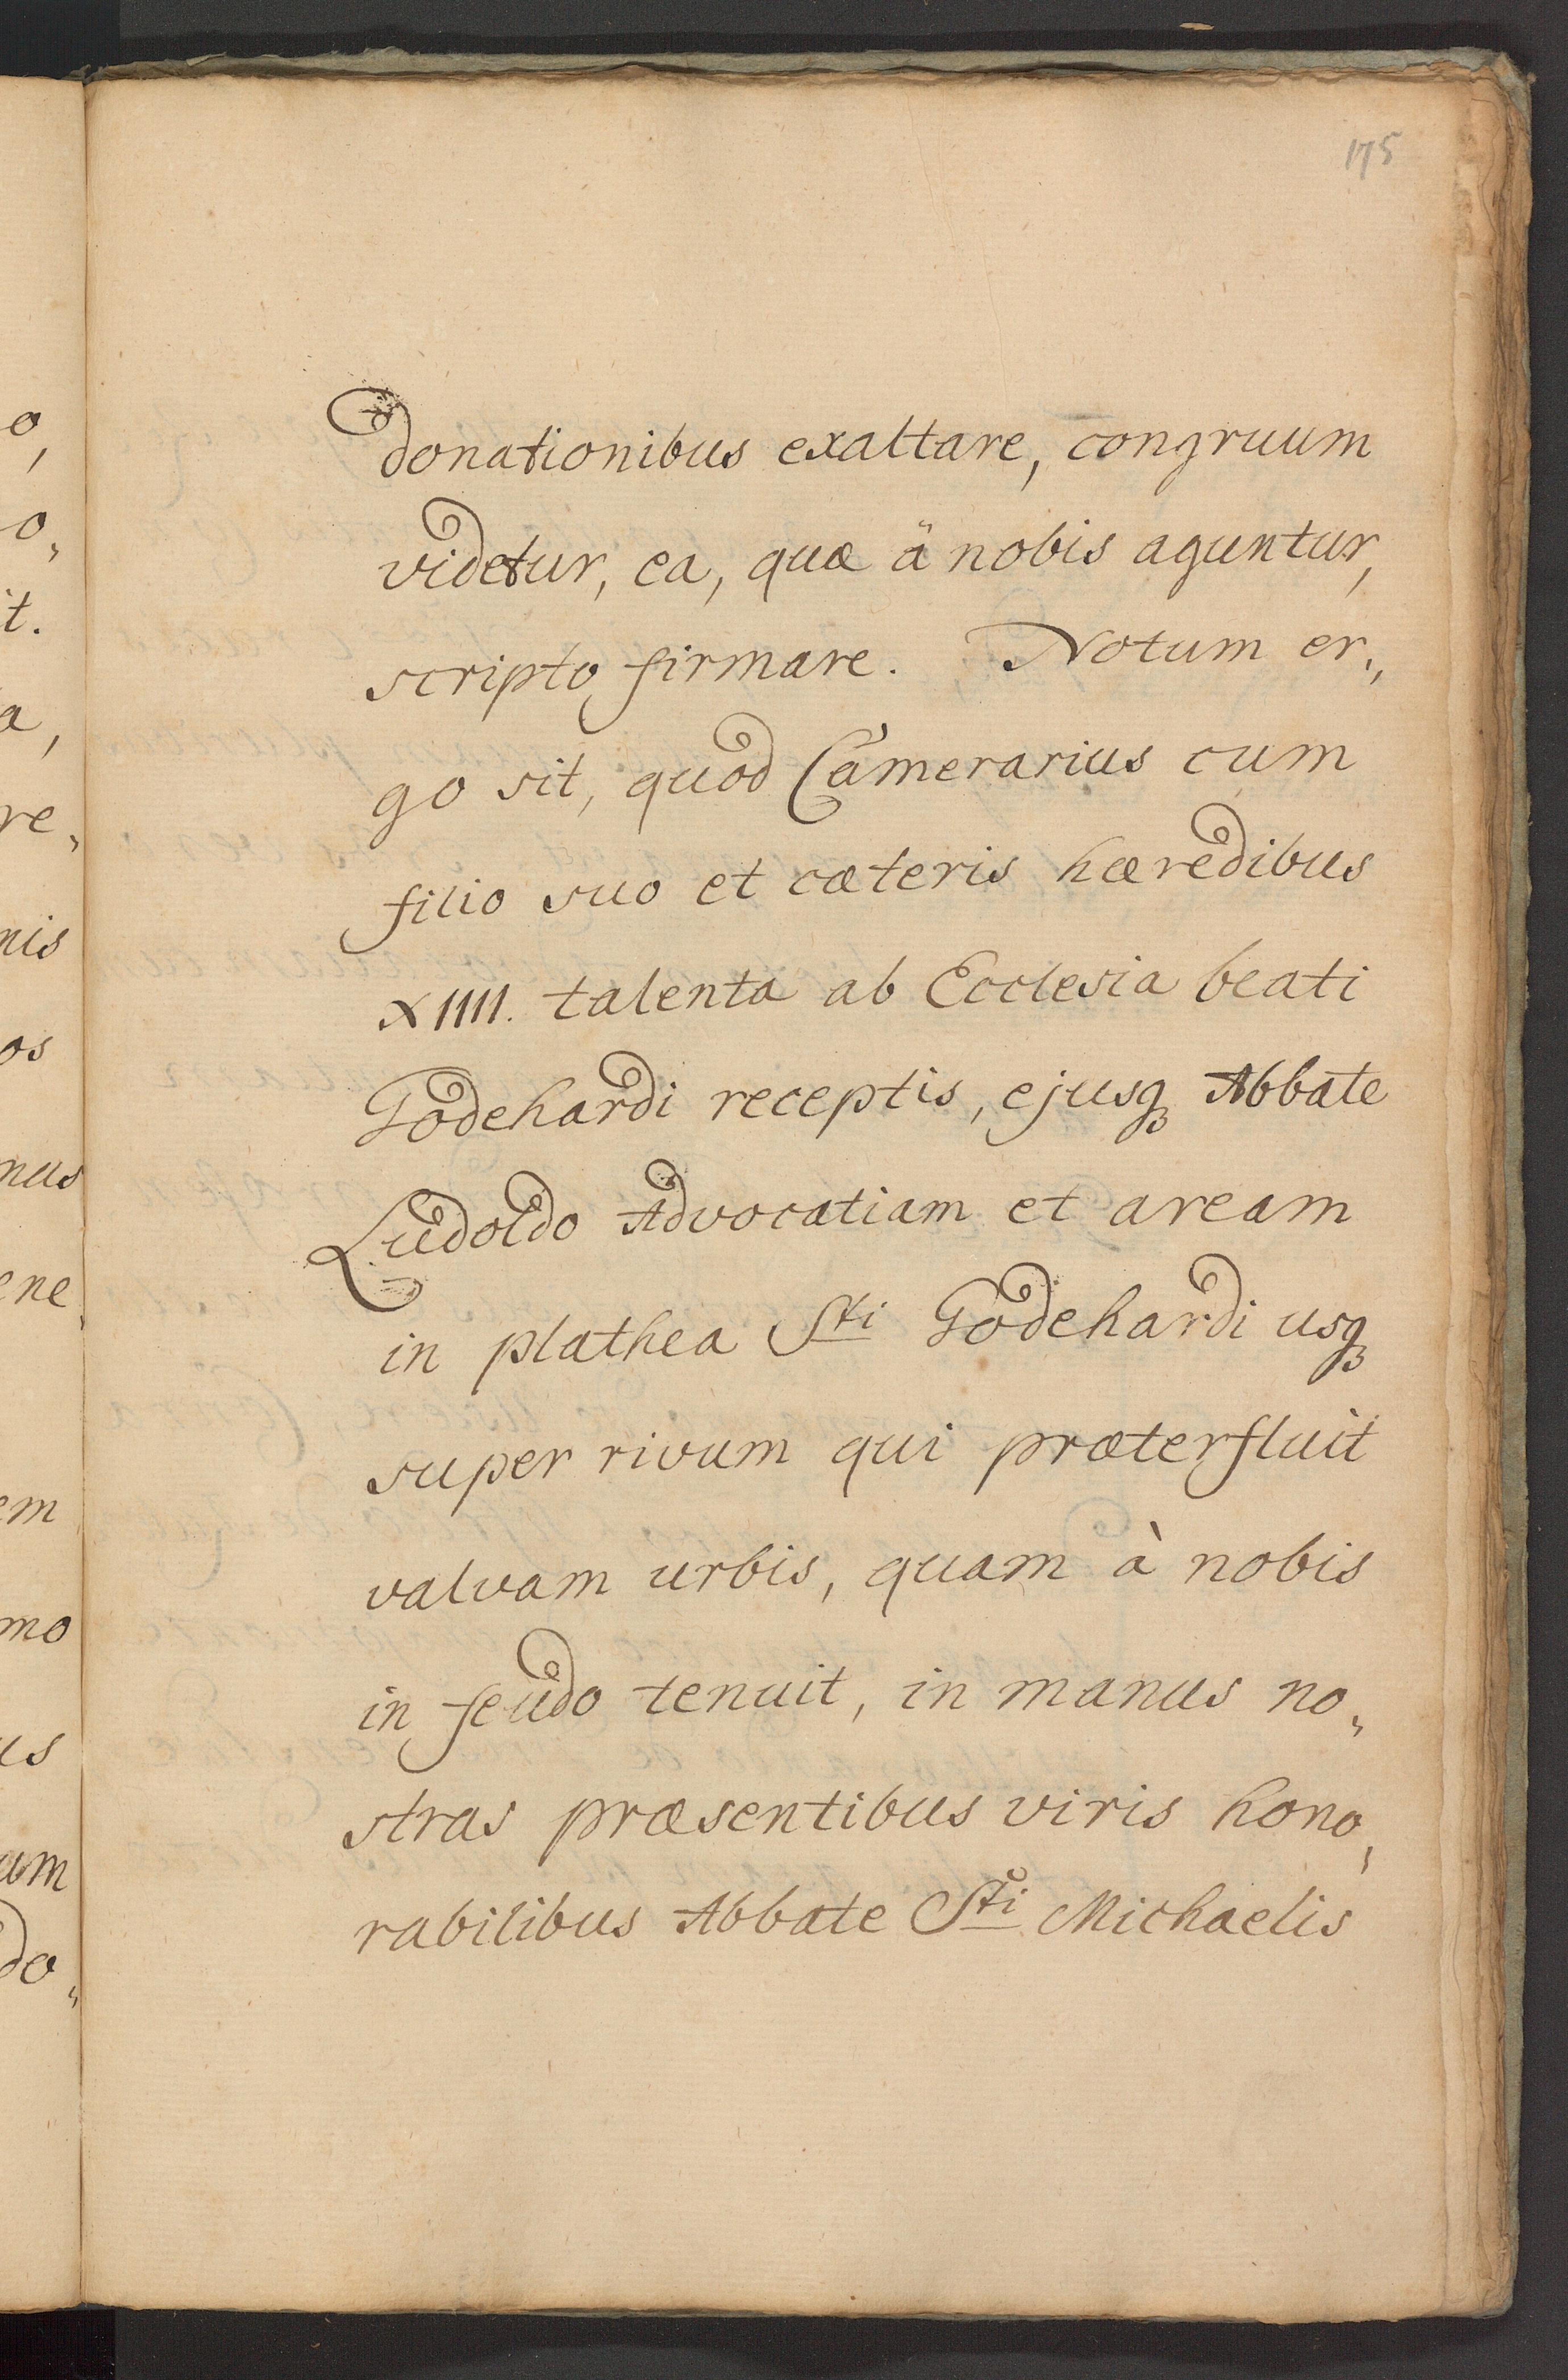 175
donationibus exaltare, congruum
videtur, ea, quæ à nobis aguntur,
scripto firmare. Notum er,,
go sit, quod Camerarius cum
filio suo et cæteris hæredibus
XIIII. talenta ab Ecclesia beati
Godehardi receptis, ejusqꝫ Abbate
Ludoldo Advocatiam et aream
in plathea Sti Godehardi usqꝫ
super rivum qui præterfluit
valvam urbis, quam à nobis
in feudo tenuit, in manus no,,
stras præsentibus viris hono,,
rabilibus Abbate Sti Michaelis